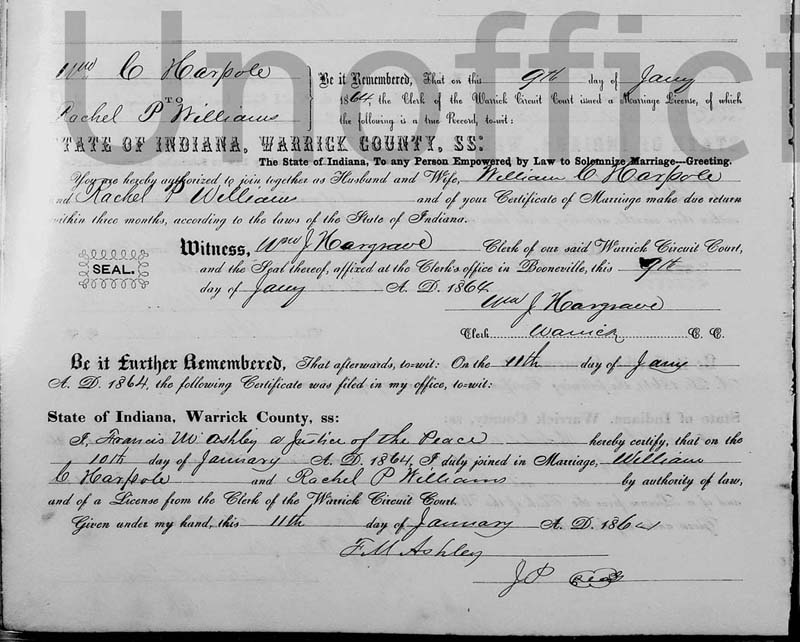 Unoffici
Wm C Harpole
TO
Rachel P Williams
Be it Remembered, That on this 9th day of Jany
1864, the Clerk of the Warrick Circuit Court issued a Marriage License, of which
the following is a true Record, to=wit:
STATE OF INDIANA, WARRICK COUNTY, SS:
The State of Indiana, To any Person Empowered by Law to Solemnize Marriage---Greeting.
You are hereby authorized to join together as Husband and Wife, William C Harpole
and Rachel P Williams and of your Certificate of Marriage make due return
within three months, according to the laws of the State of Indiana.
SEAL.
Witness, Wm J Hargrave Clerk of our said Warrick Circuit Court,
and the Seal thereof, affixed at the Clerk's office in Booneville, this 9th
day of Jany A. D. 1864.
Wm J Hargrave
Clerk Warrick C. C.
Be it Further Remembered, That afterwards, to=wit: On the 11th day of Jany
A. D. 1864, the following Certificate was filed in my office, to=wit:
State of Indiana, Warrick County, ss:
I, Francis M Ashley a Justice of the Peace hereby certify, that on the
10th day of January A. D. 1864, I duly joined in Marriage, William
C Harpole and Rachel P Williams by authority of law,
and of a License from the Clerk of the Warrick Circuit Court.
Given under my hand, this 11th day of January A. D. 1864
F M Ashley
J P